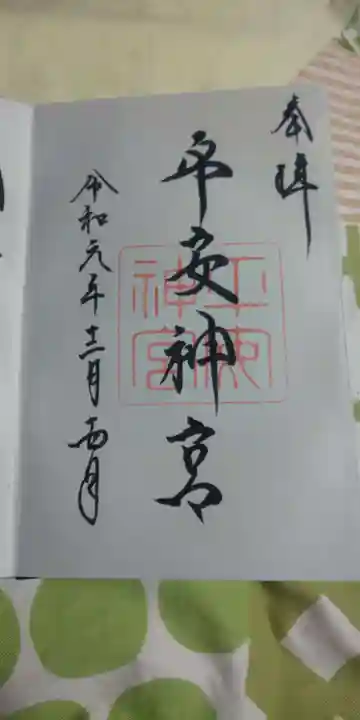 奉拝
平安神宮
平安神宮
令和元年十二月十四日